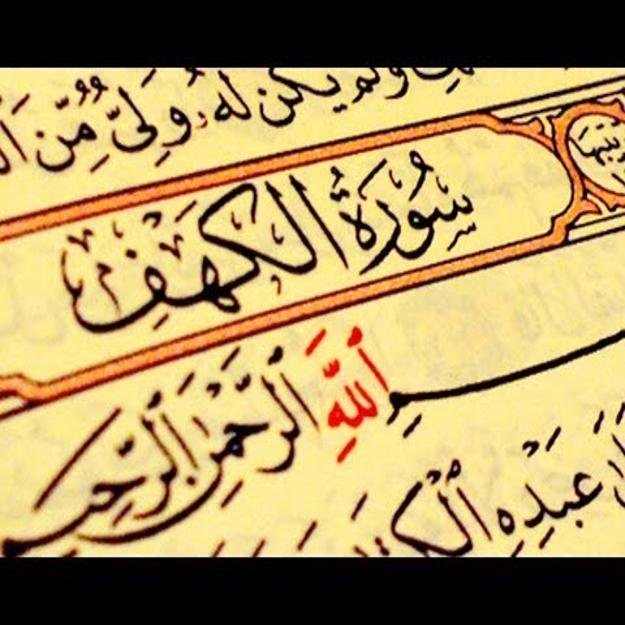 وَلَمْ يَكُن لَّهُۥ وَلِىٌّ مِّنَ
سُورَةُ الكَهْفِ
بِسْمِ اللَّهِ الرَّحْمَٰنِ الرَّحِيمِ
عَبْدِهِ ٱلْكِتَـٰبَ